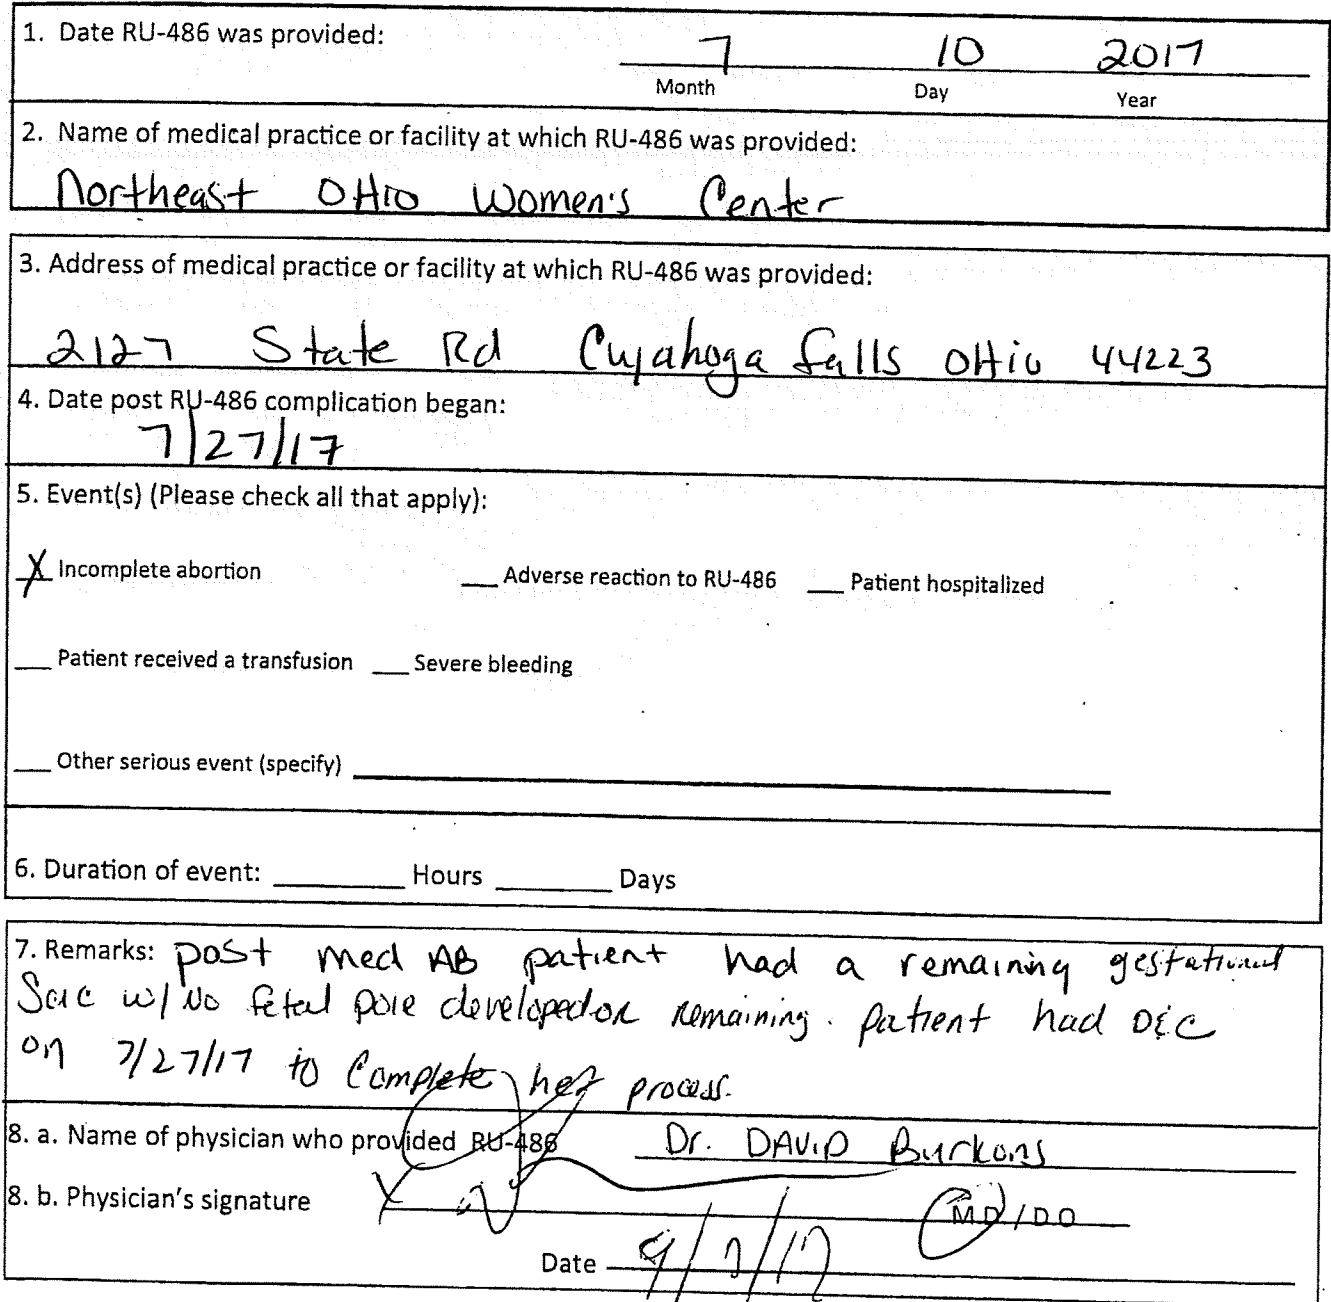 1. Date RU-486 was provided:
7 10 2017
Month Day Year
2. Name of medical practice or facility at which RU-486 was provided:
Northeast OHIO Women's Center
3. Address of medical practice or facility at which RU-486 was provided:
2127 State Rd Cuyahoga Falls OHio 44223
4. Date post RU-486 complication began:
7/27/17
5. Event(s) (Please check all that apply):
X Incomplete abortion __ Adverse reaction to RU-486 __ Patient hospitalized
__ Patient received a transfusion __ Severe bleeding
__ Other serious event (specify) ____
6. Duration of event: ____ Hours ____ Days
7. Remarks: post med AB patient had a remaining gestational
Sac w/ No fetal pole developed or remaining. patient had D&C
on 7/27/17 to Complete her process.
8. a. Name of physician who provided RU-486 Dr. DAVID Burkons
8. b. Physician's signature X MD/DO
Date 9/7/17